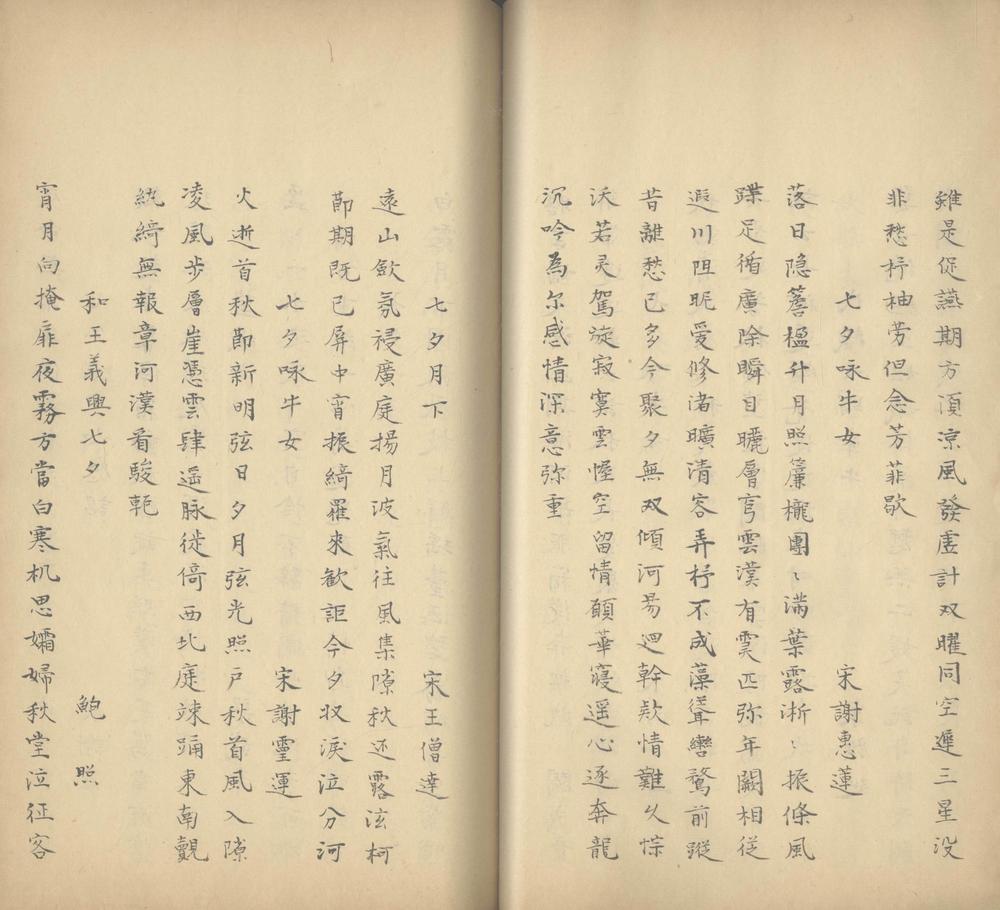 雖是促讌期方湏涼風發虛計双曜同空遲三星没
非愁杼柚劳但念芳菲歇
七夕咏牛女　宋謝惠蓮
落日隐簷楹升月照簾櫳團〻满葉露淅〻振條風
蹀足循廣除瞬目曬層穹雲漢有霛匹弥年闕相從
遐川阻昵爱修渚曠清容弄杼不成藻聳轡騖前蹤
昔離愁已多今聚夕無双傾河易迴斡欵情難久悰
沃若灵駕旋寂寞雲幄空留情顧華寢遥心逐奔龍
沉吟為尔感情深意弥重
七夕月下　宋王僧達
遠山歛氛祲廣庭揚月波氣往風集隙秋还露泫柯
莭期既已孱中宵振綺羅來歡詎今夕収淚泣分河
七夕咏牛女　宋謝靈運
火逝首秋莭新明弦日夕月弦光照戸秋首風入隙
凌風步層崖憑雲肆遥脉徙倚西北庭竦踊東南觀
紈綺無報章河漢看駿軶
和王義興七夕　鮑照
宵月向掩扉夜霧方當白寒机思孀婦秋堂泣征客